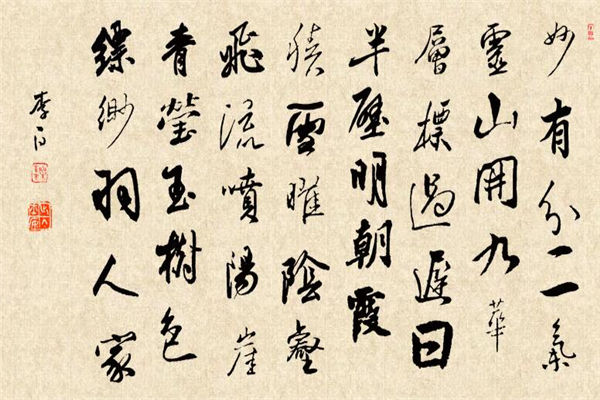 妙有分二氣
靈山開九華
層標遏遲日
半壁明朝霞
積雪曜陰壑
飛流噴陽崖
青瑩玉樹色
縹緲羽人家
李白